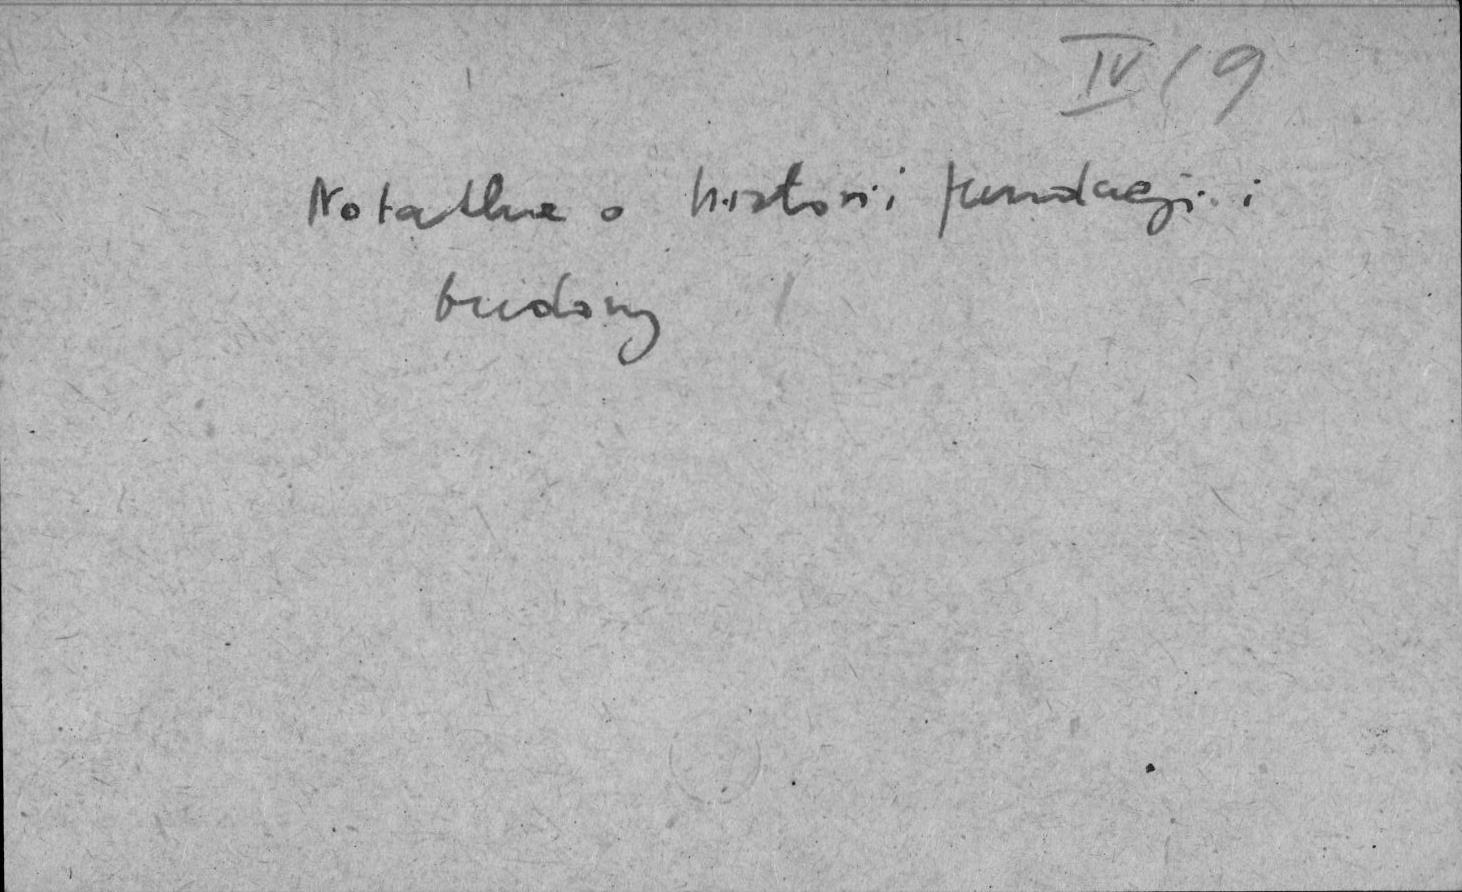 IV/9
Notatka o historii fundacji i
budowy